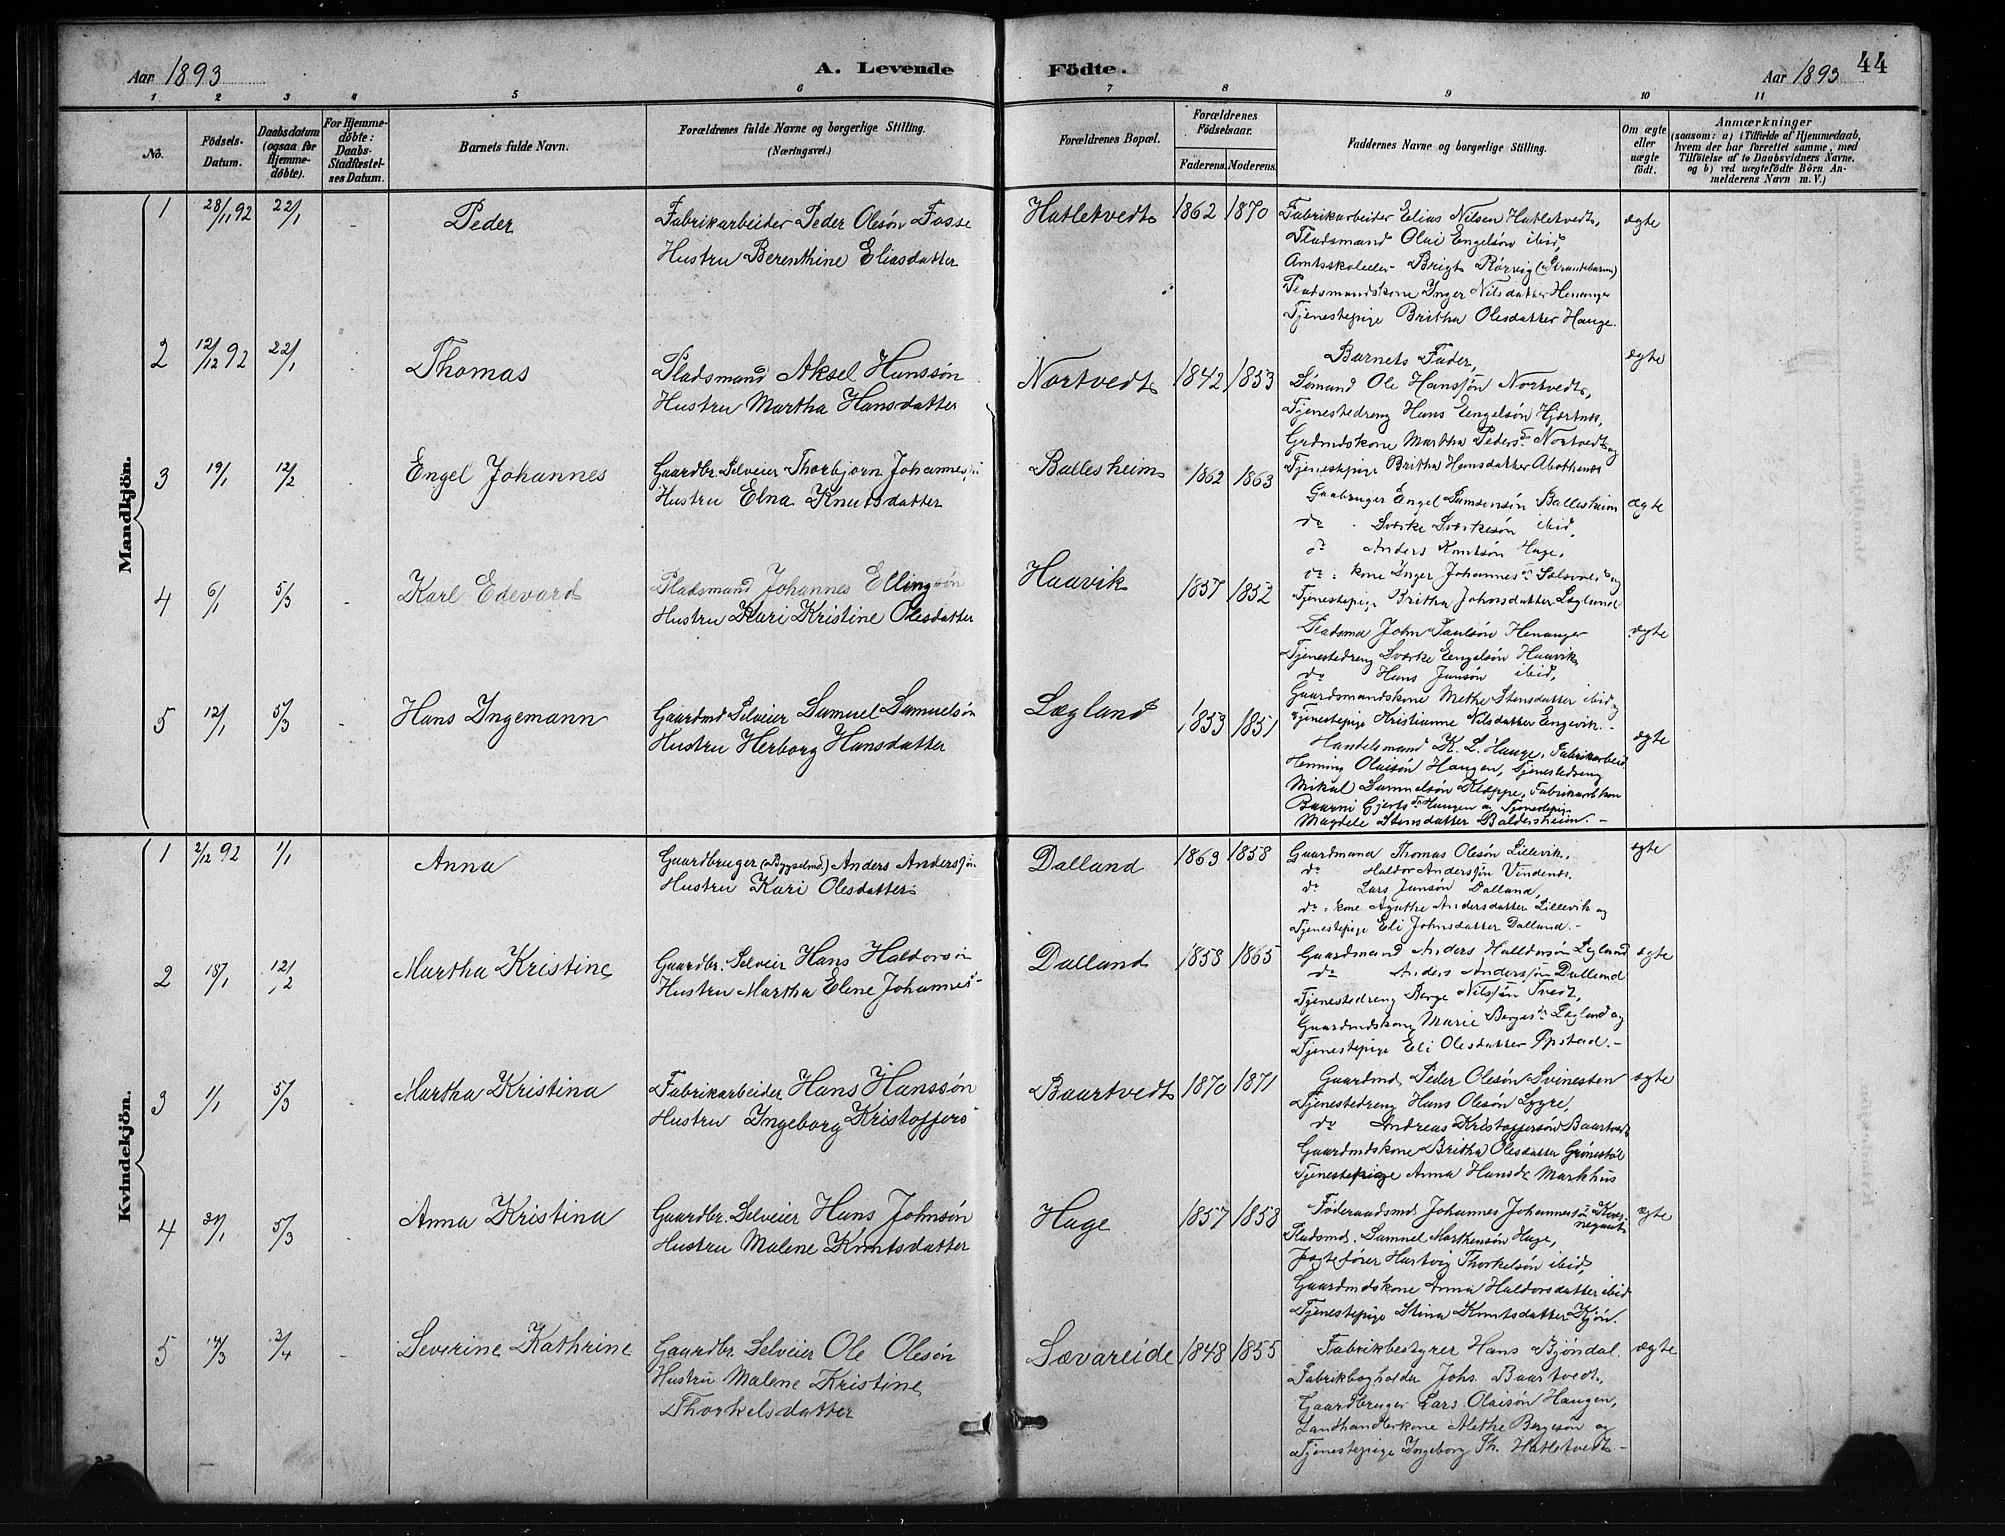 Aar 1893
A. Levende Födte.
Aar 1893
44
1 2 3 4 5 6 7 8 9 10 11
No.
Födsels-Datum.
Daabsdatum (ogsaa for Hjemme-døbte).
For Hjemme-døbte: Daabs-Stadfæstel-ses Datum.
Barnets fulde Navn.
Forældrenes fulde Navne og borgerlige Stilling.
(Næringsvei.)
Forældrenes Bopæl.
Forældrenes Födselsaar.
Faderens. Moderens.
Faddernes Navne og borgerlige Stilling.
Om ægte eller uægte födt.
Anmærkninger
(saasom: a) i Tilfælde af Hjemmedaab,
hvem der har forrettet samme, med
Tilföielse af to Daabsvidners Navne.
og b) ved uægtefödte Börn An-
melderens Navn m. V.)
Mandkjön.
1 28/11 92 22/1 - Peder
Fabrikarbeider Peder Olesön Fosse
Hustru Berenthine Eliasdatter
Hatletvedt 1862 1870
Fabrikarbeider Elias Nilsen Hatletvedt,
Pladsmand Olai Engelsön ibid,
Brigt Rörvig (Strandebarm)
Pladsmandskone Inger Nilsdatter Henanger
Tjenestepige Britha Olesdatter Hauge.
ægte
2 12/12 92 22/1 Thomas
Pladsmand Aksel Hanssön
Hustru Martha Hansdatter
Nortvedt 1842 1853
Barnets Fader,
Sömand Ole Hanssön Nortvedt,
Tjenestedreng Hans Engelsön Hjertnes,
Grdmdskone Martha Peders Nortvedt og
Tjenestepige Britha Hansdatter
ægte
3 19/1 12/2 Engel Johannes
Gaardbr. Selveier Thorbjorn Johannes
Hustru Elna Knutsdatter
Ballesheim 1862 1863
Engel Samsonsön Ballesheim
do Sværke Sværkesön ibid,
do Anders Knutsön Hage,
do kone Inger Johannes
Tjenestepige Britha Johnsdatter Lægland
ægte
4 6/1 5/3 - Karl Edevard
Pladsmand Johannes Ellingsön
Hustru Kari Kristine Olesdatter
Haavik 1857 1852
John Paulsön Henanger
Tjenestedreng Sværke Engelsön Haavik
do Hans Jansön ibid,
Gaardmandskone Methe Stensdatter ibid og
Tjenestepige Kristianne Nilsdatter Engevik.
ægte
5 12/1 5/3 - Hans Ingemann
Gaardmd Selveier Samuel Samuelsön
Hustru Herborg Hansdatter
Lægland 1853 1851
Handelsmand K. L. Hauge, Fabrikarbeid
Henning Olaisön Haugen, Tjenestedreng
Mikal Samuelsön Kleppe,
Gjerts Haugen og Tjenestepig
Magdele Stensdatter Baldersheim. -
ægte
Kvindekjön.
1 2/12 92 1/1 Anna
Gaardbruger (Bygselmd) Anders Anderssön
Hustru Kari Olesdatter
Dalland 1863 1858
Gaardmand Thomas Olesön Lillevik,
do Haldor Anderssön Vindenes,
do Lars Jansön Dalland,
do. kone Agathe Andersdatter Lillevik og
Tjenestepige Eli Johnsdatter Dalland. -
ægte
2 18/1 12/2 Martha Kristine
Gaardbr. Selveier Hans Haldorsön
Hustru Martha Elene Johannes
Dalland 1858 1865
Gaardmand Anders Halldorsön Lægland
do Anders Anderssön Dalland
Tjenestedreng Berge Nilssön Tvedt,
Gaardmdskone Marie Berges Lægland og
Tjenestepige Eli Olesdatter Opstad. -
ægte
3 1/1 5/3 Martha Kristina
Fabrikarbeider Hans Hanssön
Hustru Ingeborg Kristoffers
Baartvedt 1870 1871
Gaardmd, Peder Olesön Svinesten
Tjenestedreng Hans Olesön Lygre,
do Andreas Kristoffersön Baartvedt
Gaardmdskone Britha Olesdatter Grönestöl
Tjenestepige Anna Hansdr Markhus
ægte
4 31/1 5/3 - Anna Kristina
Gaardbr. Selveier Hans Johnsön
Hustru Malene Knutsdatter
Hage 1857 1858
Föderaadsmd Johannes Johannessön
Pladsmd. Samuel Marthensön Hage,
Jægtefører Hartvig Thorkelsön ibid,
Gaardmdskone Anna Haldorsdatter ibid
Tjenestepige Stina Knutsdatter Kjön.
ægte
5 3/4 - Severine Kathrine
Gaardbr. Selveier Ole Olesön
Hustru Malene Kristine
Thorkelsdatter
Sævareide 1848 1855
Fabrikbestyrer Hans Bjöndal
Fabrikbogholder Johs. Baartvedt,
Gaardbruger Lars Olaisön Haugen,
Landhandlerkone Alethe Bergesön og
Tjenestepige Ingeborg Th. Hatletvedt -
ægte